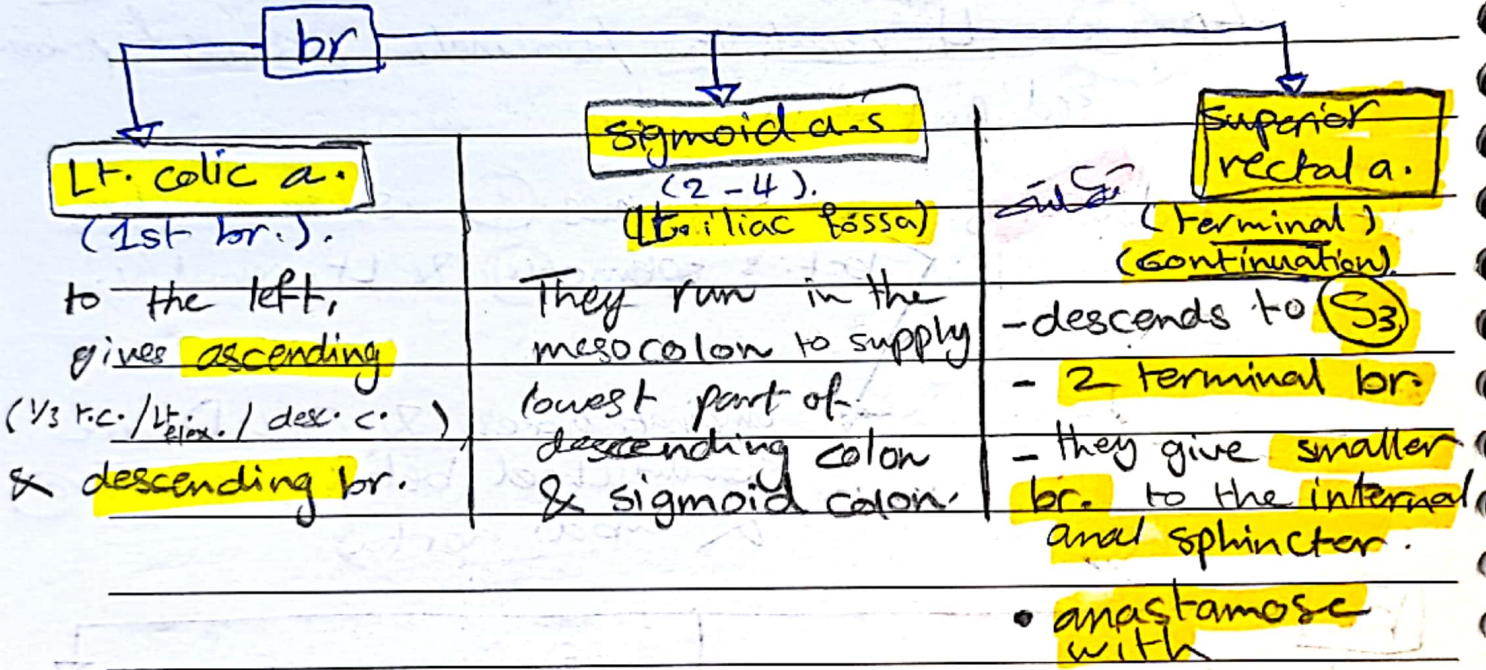 br
Lt. colic a.
(1st br.).
to the left,
gives ascending
(1/3 t.c./Lt. flex. / desc. c. )
& descending br.
sigmoid a.s
(2-4).
(Lt. iliac fossa)
They run in the
mesocolon to supply
lowest part of
descending colon
& sigmoid colon.
superior
rectal a.
(terminal)
(continuation)
- descends to S3
- 2 terminal br.
- they give smaller
br. to the internal
anal sphincter.
• anastamose
with